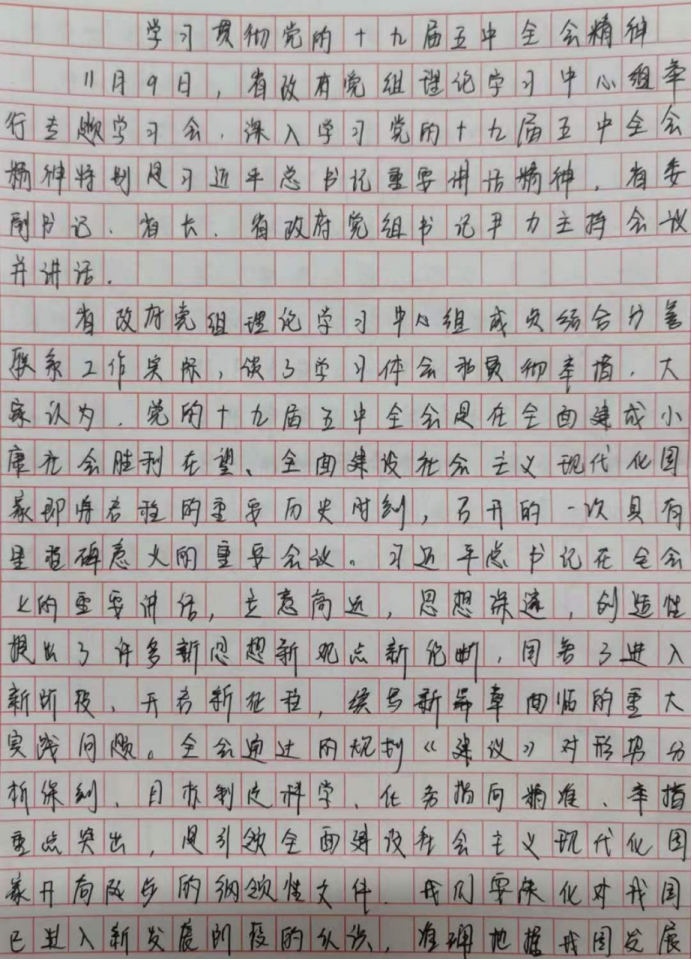 学习贯彻党的十九届五中全会精神
11月9日，省政府党组理论学习中心组举
行专题学习会，深入学习党的十九届五中全会
精神特别是习近平总书记重要讲话精神。省委
副书记、省长、省政府党组书记尹力主持会议
并讲话。
省政府党组理论学习中心组成员结合分管
联系工作实际，谈了学习体会和贯彻举措。大
家认为，党的十九届五中全会是在全面建成小
康社会胜利在望、全面建设社会主义现代化国
家即将启程的重要历史时刻，召开的一次具有
里程碑意义的重要会议。习近平总书记在全会
上的重要讲话，立意高远，思想深邃，创造性
提出了许多新思想新观点新论断，回答了进入
新阶段、开启新征程，续写新篇章面临的重大
实践问题。全会通过的规划《建议》对形势分
析深刻、目标制定科学、任务指向精准、举措
重点突出，是引领全面建设社会主义现代化国
家开局起步的纲领性文件。我们要深化对我国
已进入新发展阶段的认识，准确把握我国发展